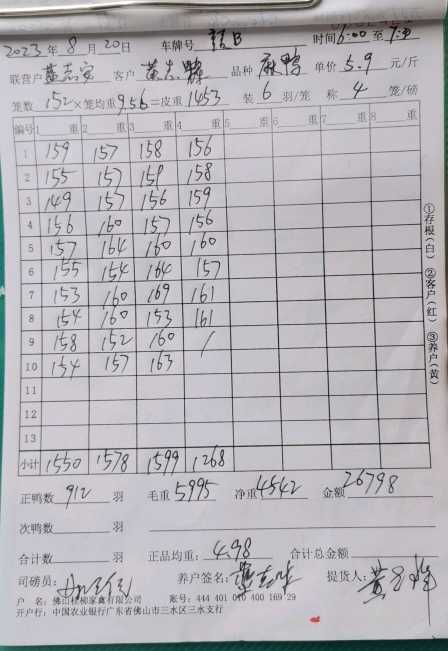 2023年8月20日 车牌号 B 时间6:00至
联营户 黄志安 客户 品种 麻鸭 单价 5.9 元/斤
笼数 152×笼均重9.56=皮重1453 装6羽/笼 称4笼/磅
编号 1 重 2 重 3 重 4 重 5 重 6 重 7 重 8 重
1 159 157 158 156
2 155 157 158
3 149 157 156 159
4 156 160 157 156
5 157 164 160 160
6 155 154 164 157
7 153 160 169 161
8 154 160 153 161
9 158 152 160 /
10 154 157 163
11
12
13
小计 1550 1578 1599 1268
正鸭数 912 羽 毛重 5995 净重 4542 金额 26798
次鸭数 羽
合计数 羽 正品均重: 4.98 合计总金额
司磅员: 养户签名: 提货人:
户 名: 佛山桂柳家禽有限公司 账号: 444 401 010 400 169 29
开户行: 中国农业银行广东省佛山市三水区三水支行
①存根(白) ②客户(红) ③养户(黄)